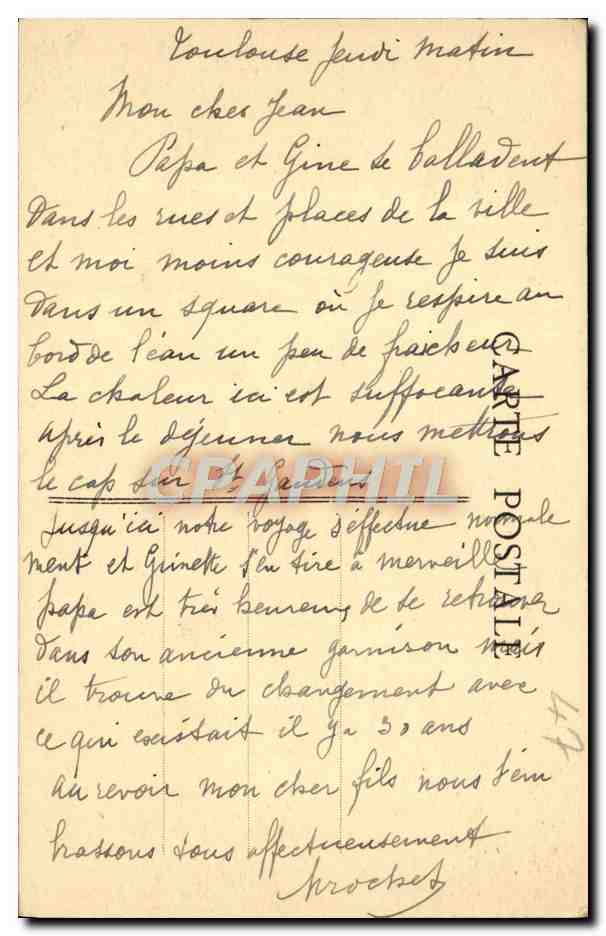 Toulouse Jeudi Matin
Mon cher Jean
Papa et Gine se balladent
Dans les rues et places de la ville
et moi moins courageuse Je suis
Dans un square où Je respire au
bord de l'eau un peu de fraicheur
La chaleur ici est suffocante
après le déjeuner nous mettrons
le cap sur St Gaudens
Jusqu'ici notre voyage s'effectue normale
ment et Ginette s'en tire à merveille
papa est très heureux de se retrouver
dans son ancienne garnison mais
il trouve du changement avec
ce qui existait il y a 30 ans
au revoir mon cher fils nous t'em
brassons tous affectueusement
CARTE POSTALE
CPAPHIL
47